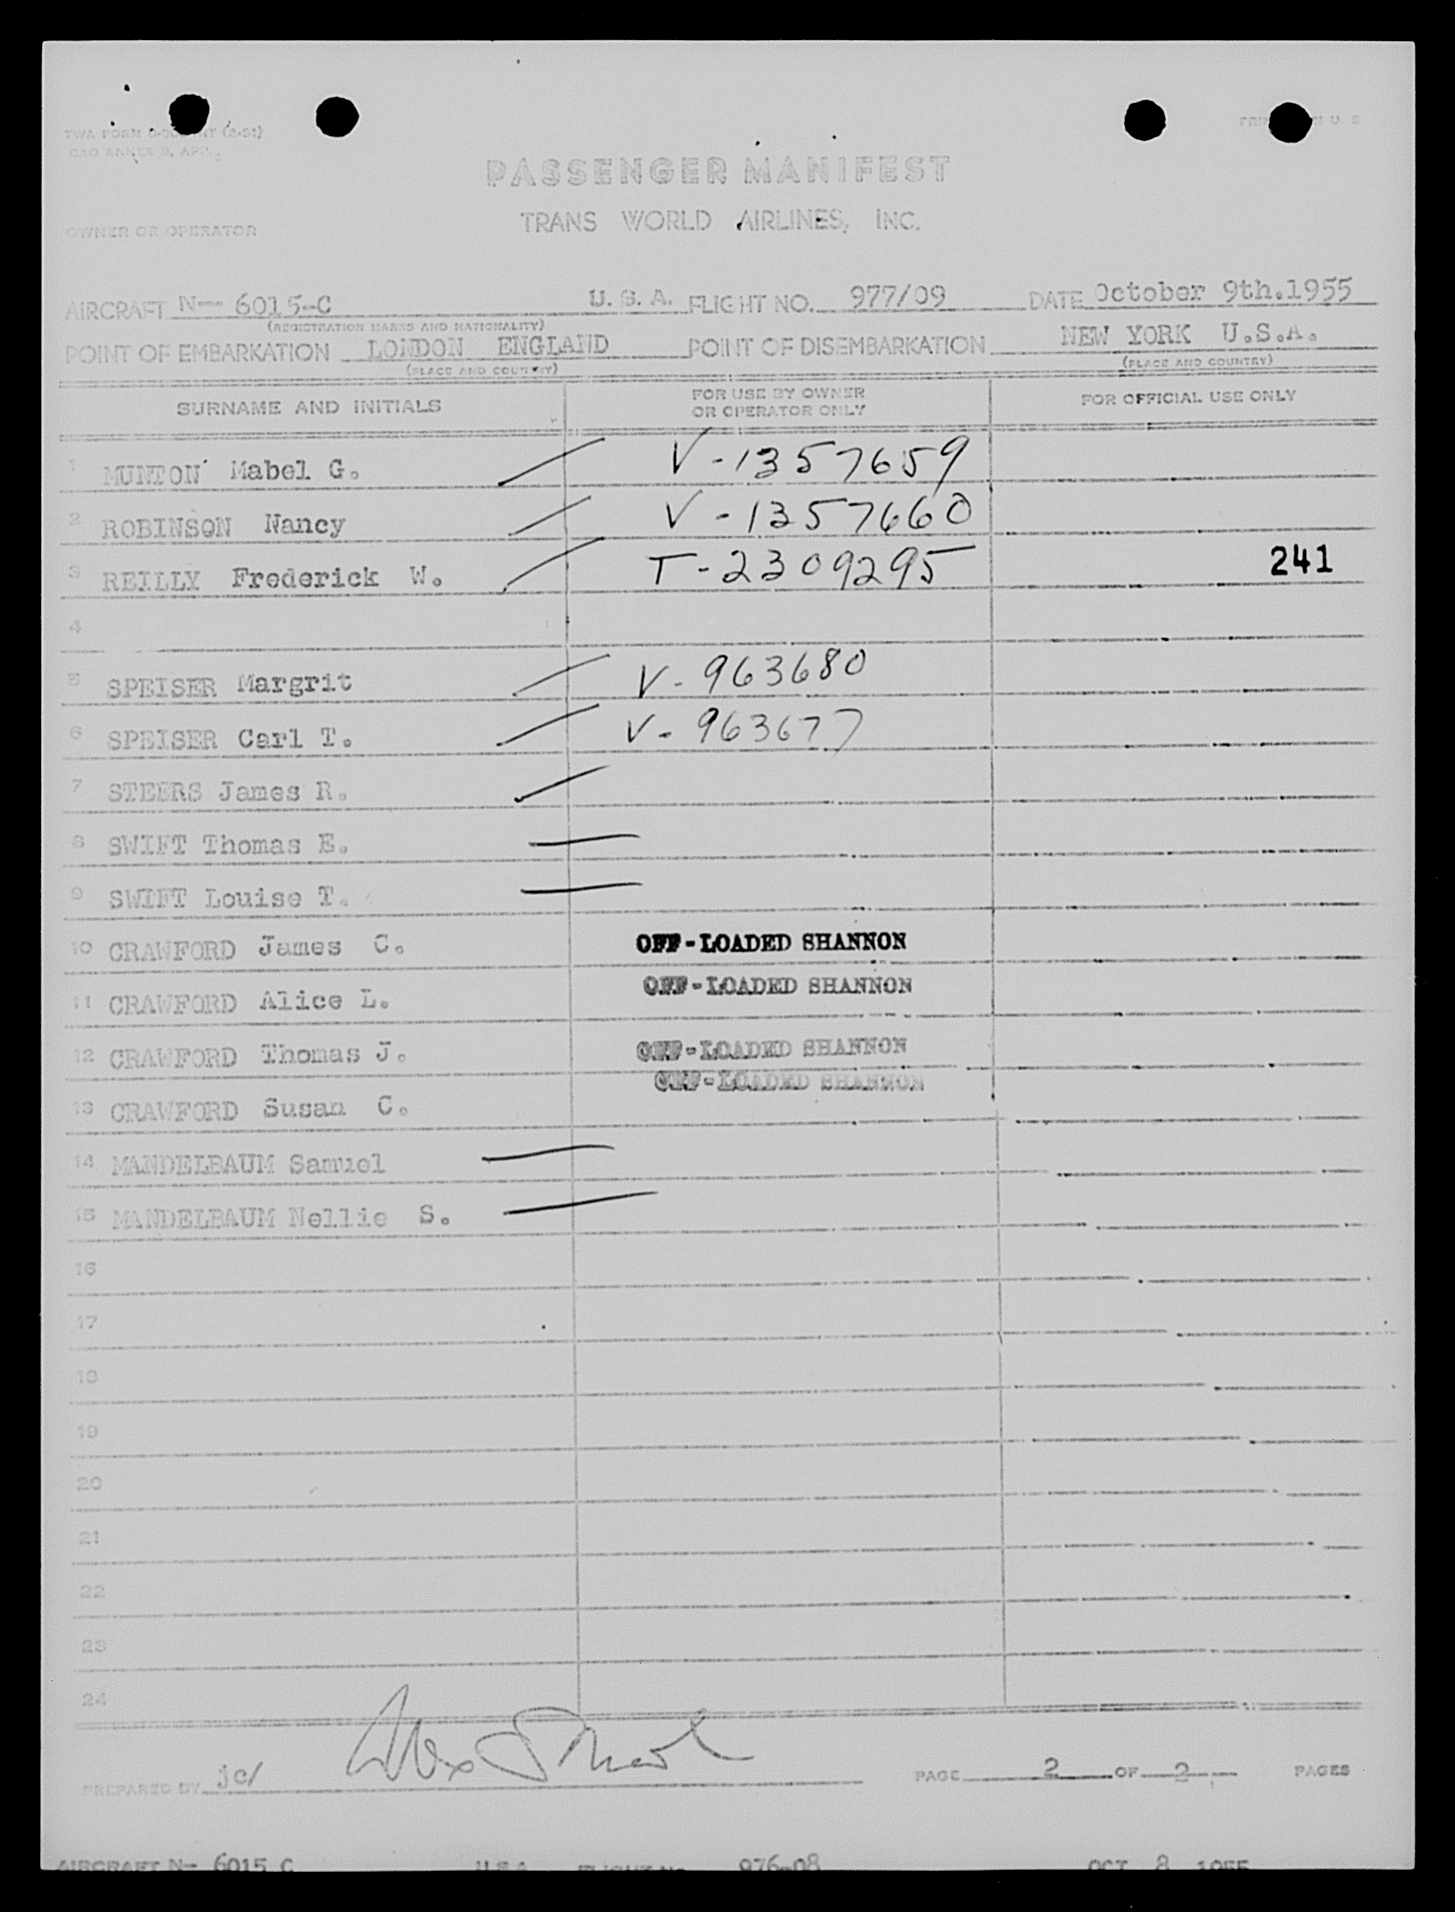 TWA FORM (2-51)
PASSENGER MANIFEST
TRANS WORLD AIRLINES, INC.
OWNER OR OPERATOR
AIRCRAFT N-- 6015-C U. S. A. FLIGHT NO. 977/09 DATE October 9th.1955
(REGISTRATION MARKS AND NATIONALITY)
POINT OF EMBARKATION LONDON ENGLAND POINT OF DISEMBARKATION NEW YORK U.S.A.
(PLACE AND COUNTRY) (PLACE AND COUNTRY)
SURNAME AND INITIALS FOR USE BY OWNER OR OPERATOR ONLY FOR OFFICIAL USE ONLY
1 MUNTON Mabel G. V-1357659
2 ROBINSON Nancy V-1357660
3 REILLY Frederick W. T-2309295 241
4
5 SPEISER Margrit V-963680
6 SPEISER Carl T. V-963677
7 STEERS James R.
8 SWIFT Thomas E.
9 SWIFT Louise T.
10 CRAWFORD James C. OFF-LOADED SHANNON
11 CRAWFORD Alice L. OFF-LOADED SHANNON
12 CRAWFORD Thomas J. OFF-LOADED SHANNON
13 CRAWFORD Susan C. OFF-LOADED SHANNON
14 MANDELBAUM Samuel
15 MANDELBAUM Nellie S.
16
17
18
19
20
21
22
23
24
PREPARED BY jc/ PAGE 2 OF 2 PAGES
AIRCRAFT N- 6015 C U.S.A. FLIGHT No. 976-08 OCT 8 1955